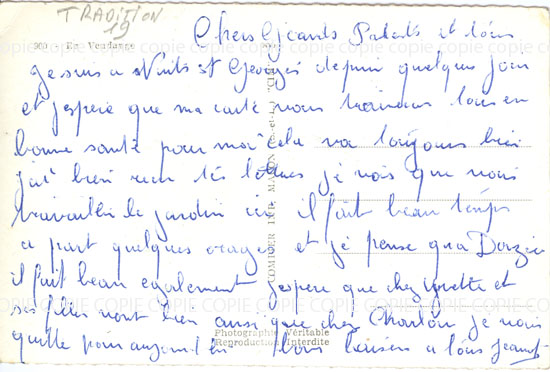 TRADITION
19
360 - En Vendange
Chers Grands Parents et tous
je suis a Nuits St Georges depuis quelques jour
et j'espere que ma carte vous trouveras tous en
bonne santé pour moi cela va toujours bien
j'ai bien recu tes lettres je vois que vous
travaillé le jardin ici il fait beau temps
a part quelques orages et je pense qu a
il fait beau egalement j'espere que chez Yvette et
ses filles vont bien ainsi que chez Charlou je vous
quitte pour aujourd'hui bons baisers a tous Jeannot
COMBIER IMP. MACON
Photographie Véritable
Reproduction Interdite
COPIE COPIE COPIE COPIE COPIE COPIE